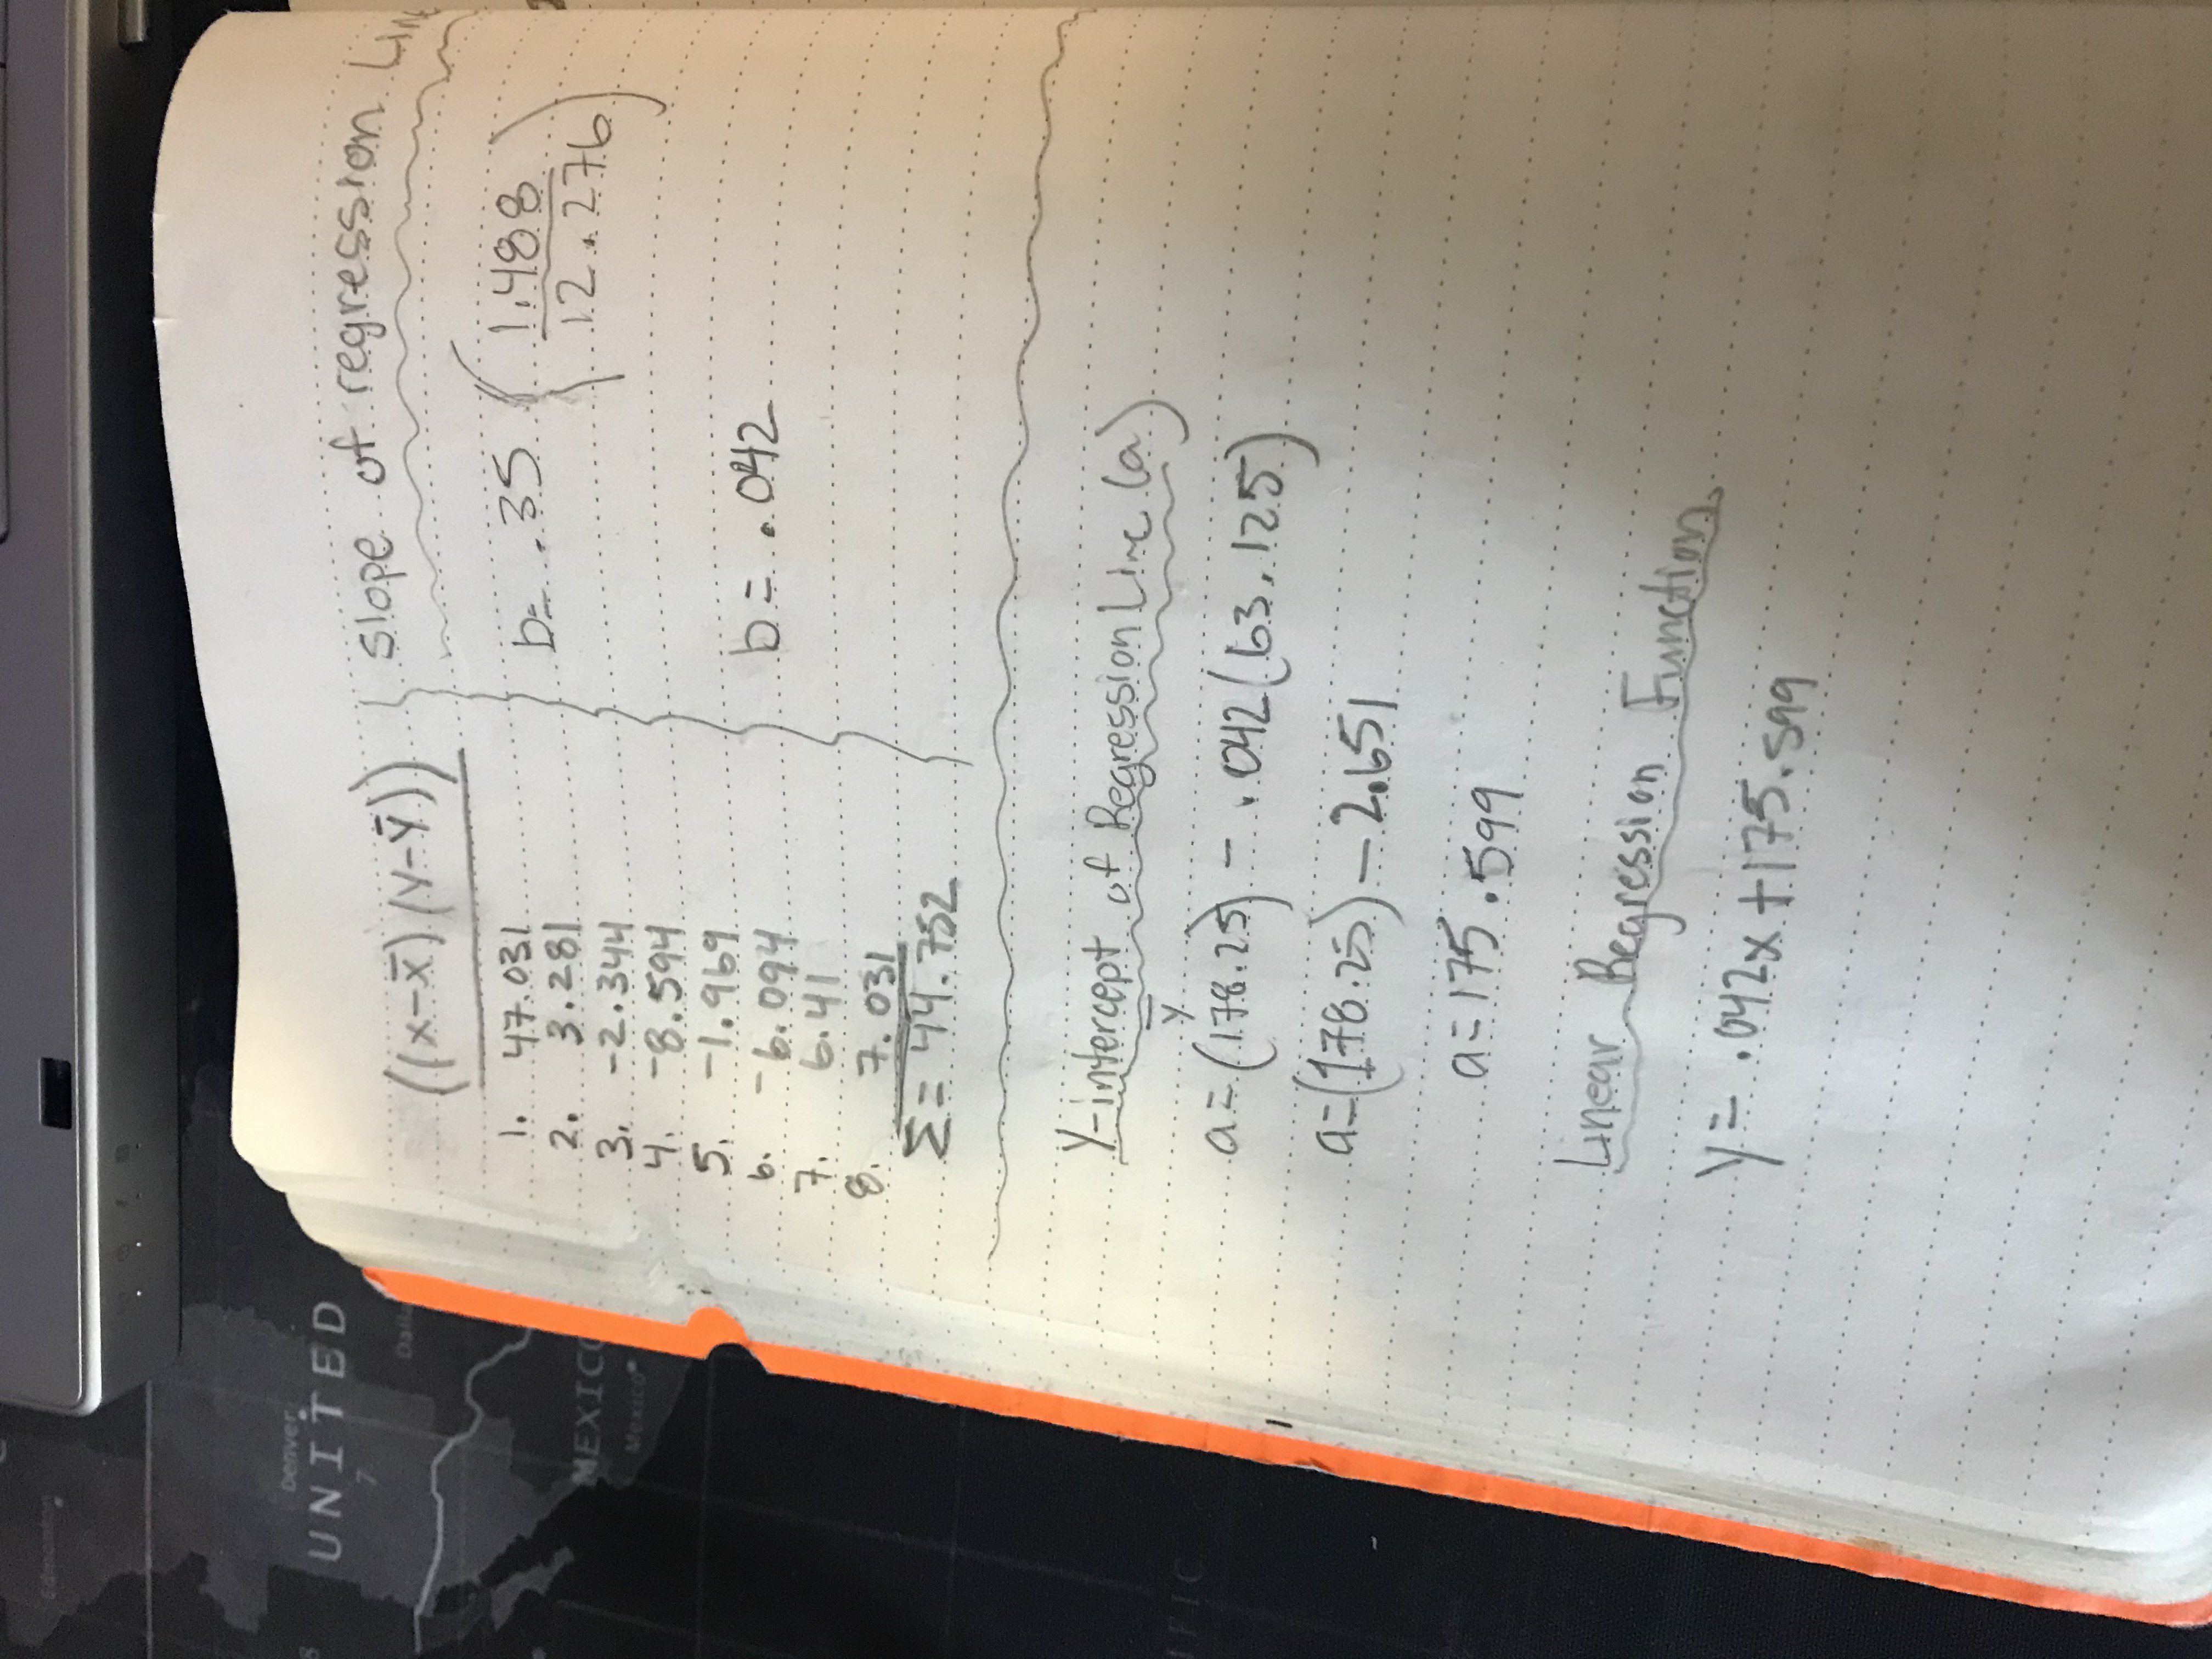 Edmonton
Denver
UNITED
7
8
Dalla
MEXICO
Mexico
IFIC
((x-x̄)(y-ȳ))
1. 47.031
2. 3.281
3. -2.344
4. -8.594
5. -1.969
6. -6.094
7. 6.41
8. 7.031
Σ= 44.752
slope of regression Lin
b= .35 (1.488/12.276)
b= .042
Y-intercept of Regression Line (a)
ȳ
a=(178.25) - .042(63.125)
a=(178.25) - 2.651
a=175.599
Linear Regression Function
y= .042x+175.599